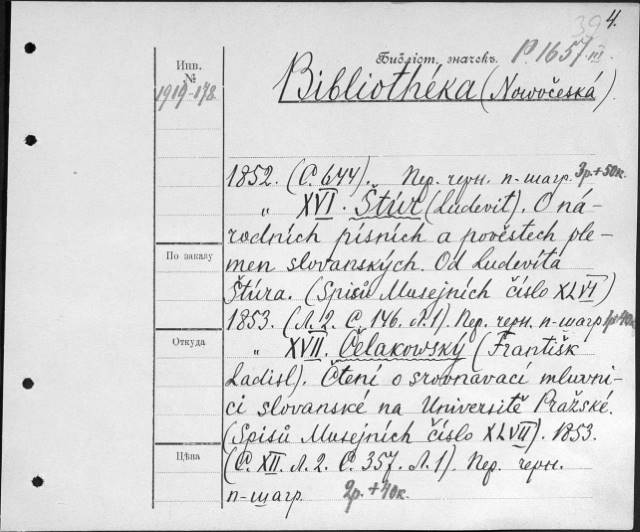 394.
Инв.
№
1919-178
Библіот. значекъ.
P.1657.III
Bibliothéka (Nowočeská).
1852. (С. 644). Пер. черн. п-шагр. 3р.+50к.
„ XVI. Štúr (Ludevít). O ná-
rodních písních a pověstech ple-
men slovanských. Od Ludevíta
Štúra. (Spisů Musejních číslo XLVI)
1853. (Л.2. С. 146. Л.1). Пер. черн. п-шагр.
„ XVII. Čelakowský (Františk
Ladisl). Čtení o srovnavací mluvni-
ci slovanské na Universitě Pražské.
(Spisů Musejních číslo XLVII). 1853.
(С. XII. Л. 2. С. 357. Л.1). Пер. черн.
п-шагр. 2р.+40к.
По заказу
Откуда
Цѣна